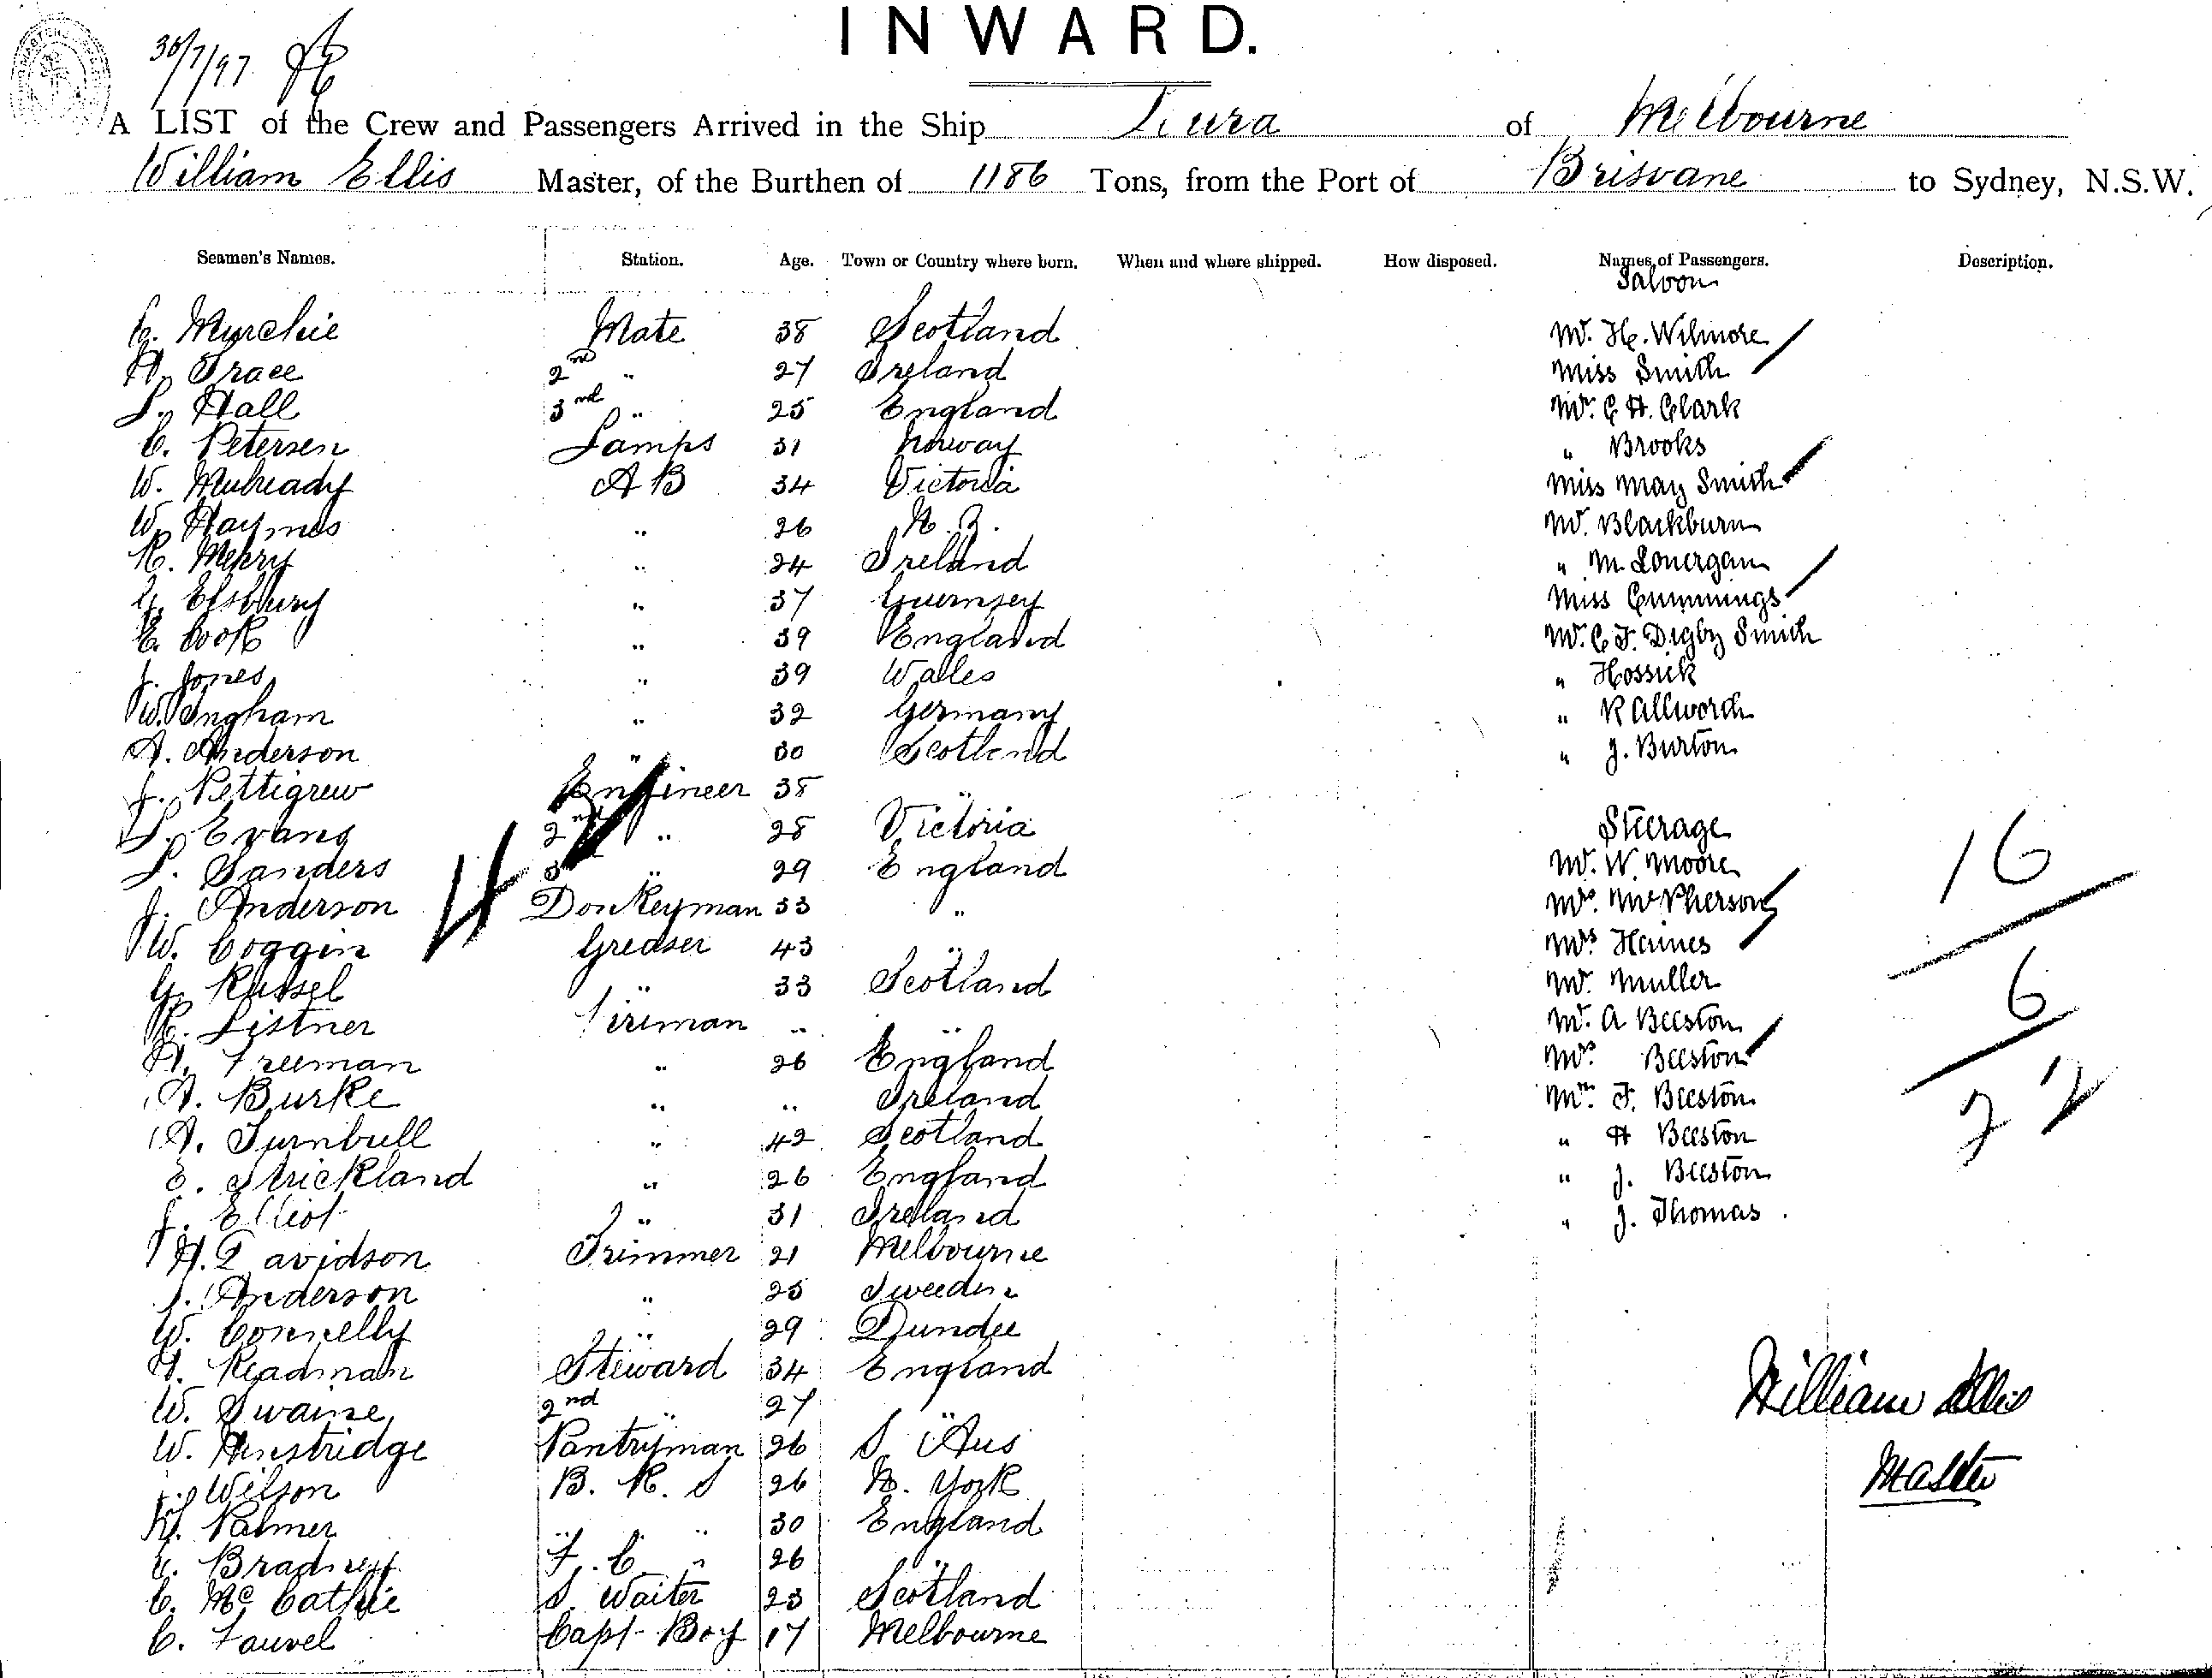 INWARD.
30/7/97
A LIST of the Crew and Passengers Arrived in the Ship Tiura of Melbourne
William Ellis Master, of the Burthen of 1186 Tons, from the Port of Brisvane to Sydney, N.S.W.
Seamen's Names. Station. Age. Town or Country where born. When and where shipped. How disposed. Names of Passengers. Description.
Saloon
C. Murchie Mate 38 Scotland Mr. H. Wilmore
A. Grace 2nd " 27 Ireland Miss Smith
S. Hall 3rd " 25 England Mr. C H. Clark
C. Petersen Lamps 31 Norway " Brooks
W. Mulready A B 34 Victoria Miss May Smith
W. Haymes " 26 N. Z. Mr. Blackburn
R. Merry " 24 Ireland " M. Lonergan
G. Elsbury " 37 Guernsey Miss Cummings
E. Cook " 39 England Mr. C F. Digby Smith
J. Jones " 39 Wales " Hossick
W. Ingham " 32 Germany " R Allworth
A. Anderson " 30 Scotland " J. Burton
J. Pettigrew Engineer 38 "
S. Evans 2nd " 28 Victoria Steerage
S. Sanders 3rd " 29 England Mr. W. Moore 16
J. Anderson Donkeyman 33 " Mrs. McPherson
W. Coggin Greaser 43 " Mrs Haines
G. Russel " 33 Scotland Mr. Muller 6
R. Listner Fireman " " Mr. A Beeston
A. Freeman " 26 England Mrs. Beeston
A. Burke " " Ireland Mr. F. Beeston 22
A. Turnbull " 42 Scotland " H Beeston
E. Strickland " 26 England " J. Beeston
J. Elliot " 31 Ireland " J. Thomas
H. Davidson Trimmer 21 Melbourne
J. Anderson " 25 Sweeden
W. Connelly " 29 Dundee
A. Readman Steward 34 England
W. Swaine 2nd " 27 " William Ellis
W. Pantryman 26 S. Aus
J. Wilson B. R. S 26 N. York Master
H. Palmer " " 30 England
C. F. C " 26 "
C. McCathie S. Waiter 23 Scotland
C. Fauvel Capt Boy 17 Melbourne